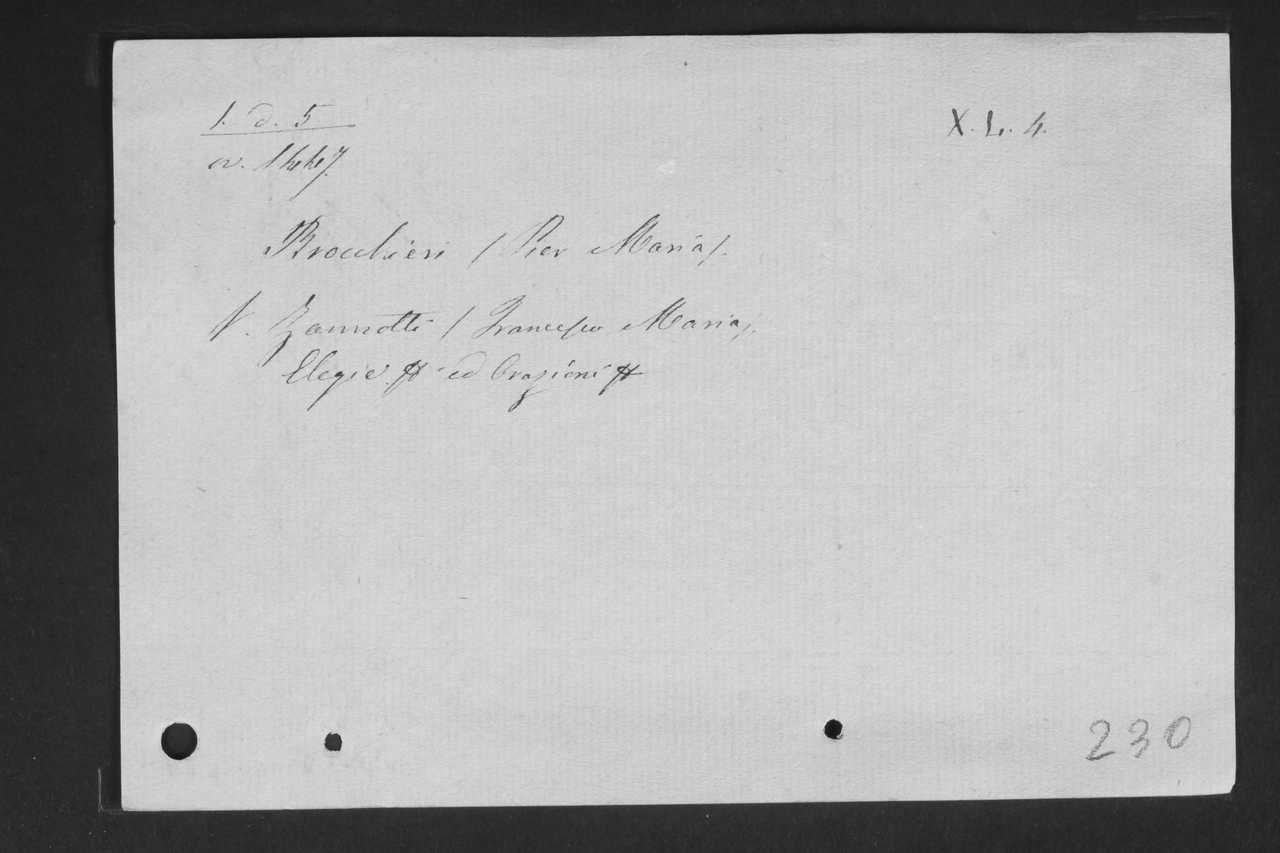 1. d. 5
X. L. 4.
ov. 14447.
Brochieri / Pier Maria /.
V. Zannotti / Francesco Maria /.
Elegie ## ed Orazioni ##
230